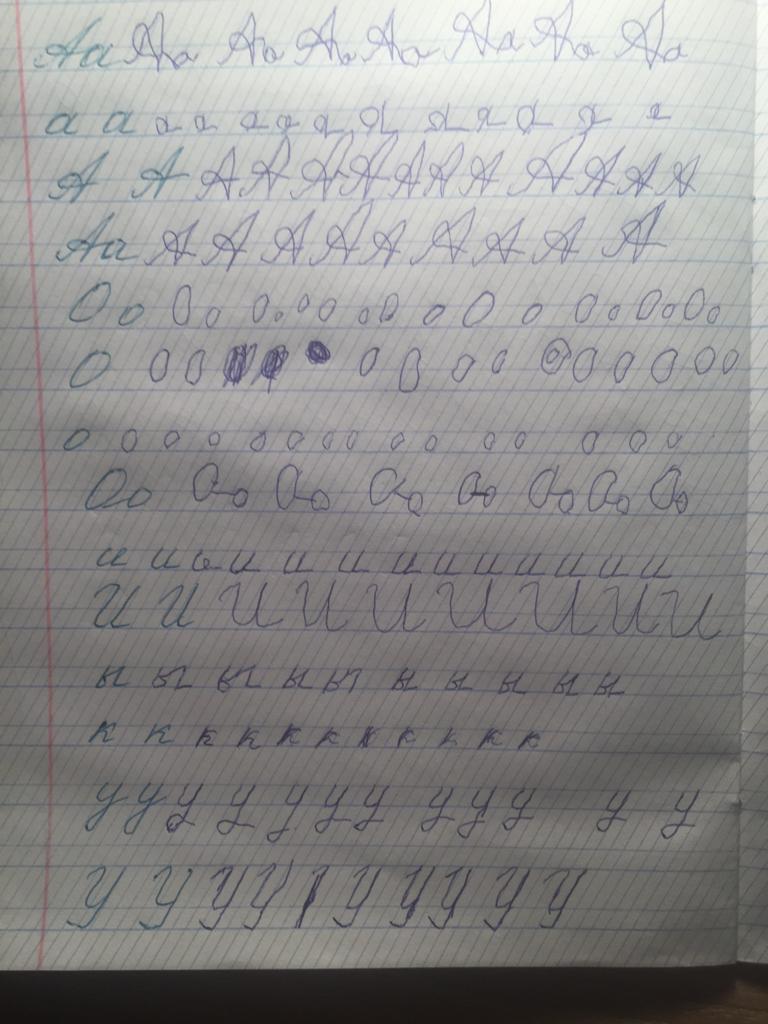 Аа Аа Аа Аа Аа Аа Аа Аа
а а а а а а а а а а а а а
А А А А А А А А А А А А А
Аа А А А А А А А А А
Оо Оо О о о о о о о О о О о Оо Оо
О О О О О О О О О О О О О О
о о о о о о о о о о о о о о о
Оо Оо Оо Оо Оо Оо Оо Оо
и и и и и и и и и и и и и
И И И И И И И И И
ы ы ы ы ы ы ы ы ы ы
к к к к к к к к к к к
у у у у у у у у у у у у
У У У У У У У У У